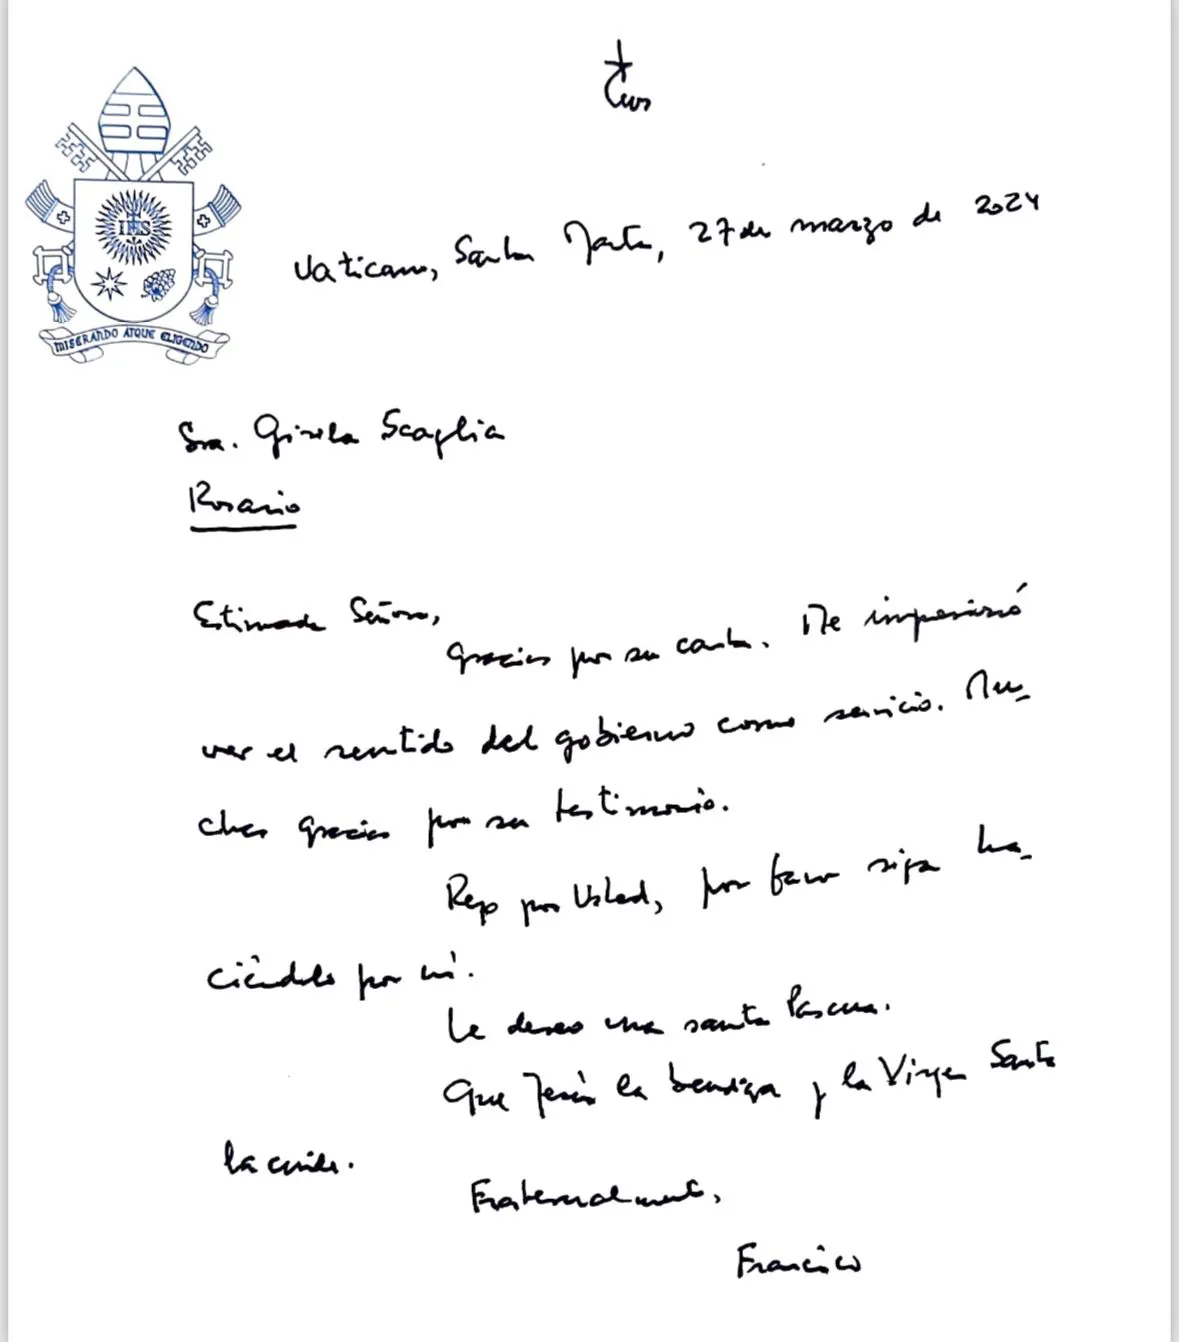 IHS
MISERANDO ATQUE ELIGENDO
Vaticano, Santa Marta, 27 de marzo de 2024
Sra. Gisela Scaglia
Rosario
Estimada Señora,
gracias por su carta. Me impresionó
ver el sentido del gobierno como servicio. Mu-
chas gracias por su testimonio.
Rezo por Usted, por favor siga ha-
ciéndolo por mí.
Le deseo una santa Pascua.
Que Jesús la bendiga y la Virgen Santa
la cuide.
Fraternalmente,
Francisco